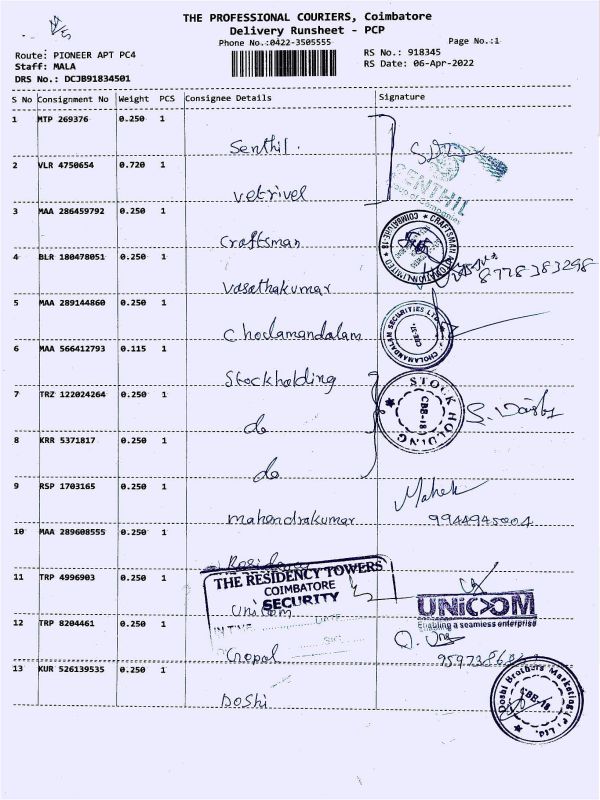 THE PROFESSIONAL COURIERS, Coimbatore
Delivery Runsheet - PCP
Phone No.:0422-3505555
Page No.:1
Route: PIONEER APT PC4
Staff: MALA
DRS No.: DCJB91834501
RS No.: 918345
RS Date: 06-Apr-2022
S No Consignment No Weight PCS Consignee Details Signature
1 MTP 269376 0.250 1
Senthil.
2 VLR 4750654 0.720 1
SENTHIL
Group of Companies
Vetrivel
3 MAA 286459792 0.250 1
Craftsman
CRAFTSMAN AUTOMATION LIMITED COIMBATORE-18
4 BLR 180478051 0.250 1
8778383298
Vasathakumar
5 MAA 289144860 0.250 1
Cholamandalam
CHOLAMANDALAM SECURITIES LTD
CBE-18.
6 MAA 566412793 0.115 1
Stockholding
7 TRZ 122024264 0.250 1
STOCK HOLDING
CBE-18
do
8 KRR 5371817 0.250 1
do
9 RSP 1703165 0.250 1
Mahek
mahendrakumar
9944945004
10 MAA 289608555 0.250 1
Residency
THE RESIDENCY TOWERS
COIMBATORE
SECURITY
11 TRP 4996903 0.250 1
Unicom
IN TIME DATE
SIG
UNICOM
Enabling a seamless enterprise
12 TRP 8204461 0.250 1
Gopal
13 KUR 526139535 0.250 1
Doshi
Doshi Brothers Marketing (P) Ltd.
CBE-18